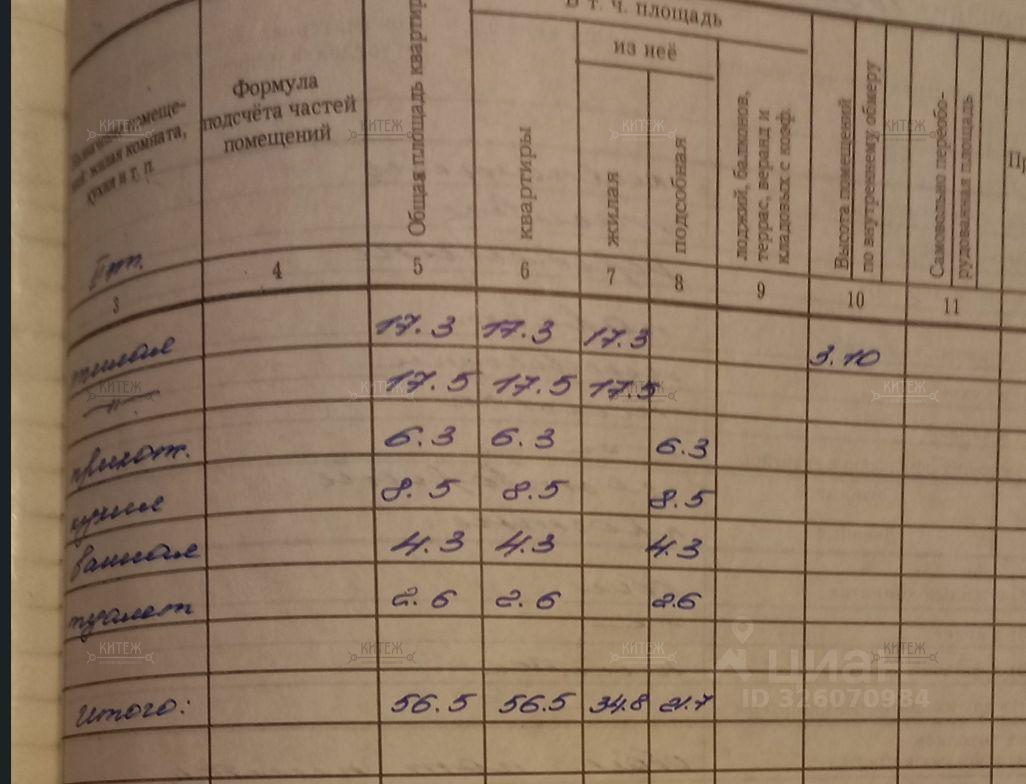 В т. ч. площадь
из неё
Формула
подсчёта частей
помещений
жилая комната,
кухня и т. п.
Общая площадь квартир
квартиры
жилая
подсобная
лоджий, балконов,
террас, веранд и
кладовых с коэф.
Высота помещений
по внутреннему обмеру
Самовольно переобо-
рудованная площадь
3 4 5 6 7 8 9 10 11
жилая 17.3 17.3 17.3 3.10
—"— 17.5 17.5 17.5
прихож. 6.3 6.3 6.3
кухня 8.5 8.5 8.5
ванная 4.3 4.3 4.3
туалет 2.6 2.6 2.6
Итого: 56.5 56.5 34.8 21.7
КИТЕЖ КИТЕЖ КИТЕЖ КИТЕЖ
КИТЕЖ КИТЕЖ КИТЕЖ КИТЕЖ
КИТЕЖ КИТЕЖ КИТЕЖ КИТЕЖ
циан
ID 326070984